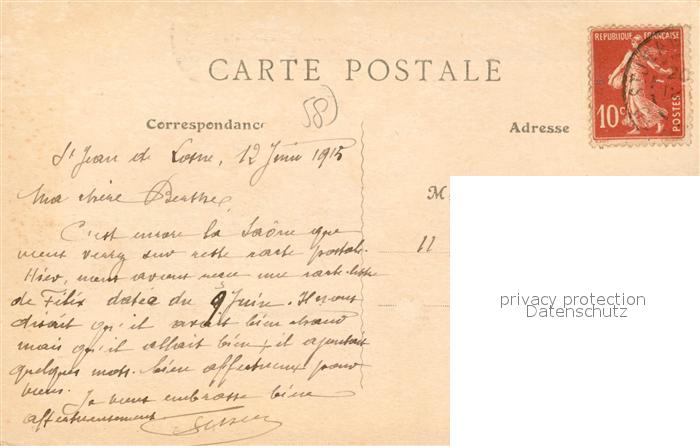 CARTE POSTALE
REPUBLIQUE FRANÇAISE
10c
POSTES
58)
Correspondance
Adresse
St Jean de Losne, 12 Juin 1915
Ma chère Berthe,
M.
C'est encore la Saône que
vous verrez sur cette carte postale.
11
Hier, nous avons reçu une carte-lettre
de Félix datée du 9 Juin. Il nous
disait qu'il avait bien chaud
mais qu'il allait bien, il ajoutait
quelques mots bien affectueux pour
vous.
Je vous embrasse bien
affectueusement
privacy protection
Datenschutz